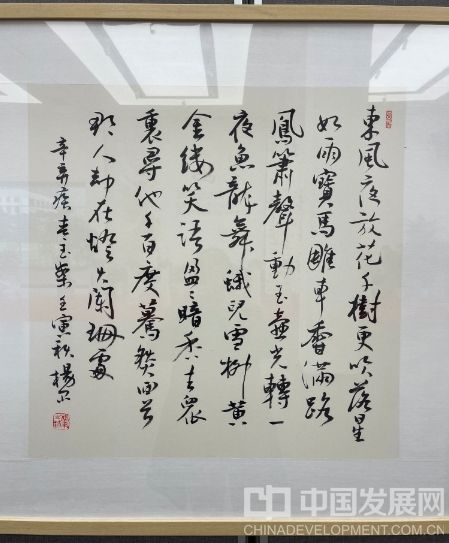 東風夜放花千樹更吹落星
如雨寶馬雕車香滿路
鳳簫聲動玉壺光轉一
夜魚龍舞蛾兒雪柳黃
金縷笑語盈〻暗香去衆
裏尋他千百度驀然回首
那人却在燈火闌珊處
辛弃疾青玉案壬寅秋楊
中国发展网
CHINADEVELOPMENT.COM.CN